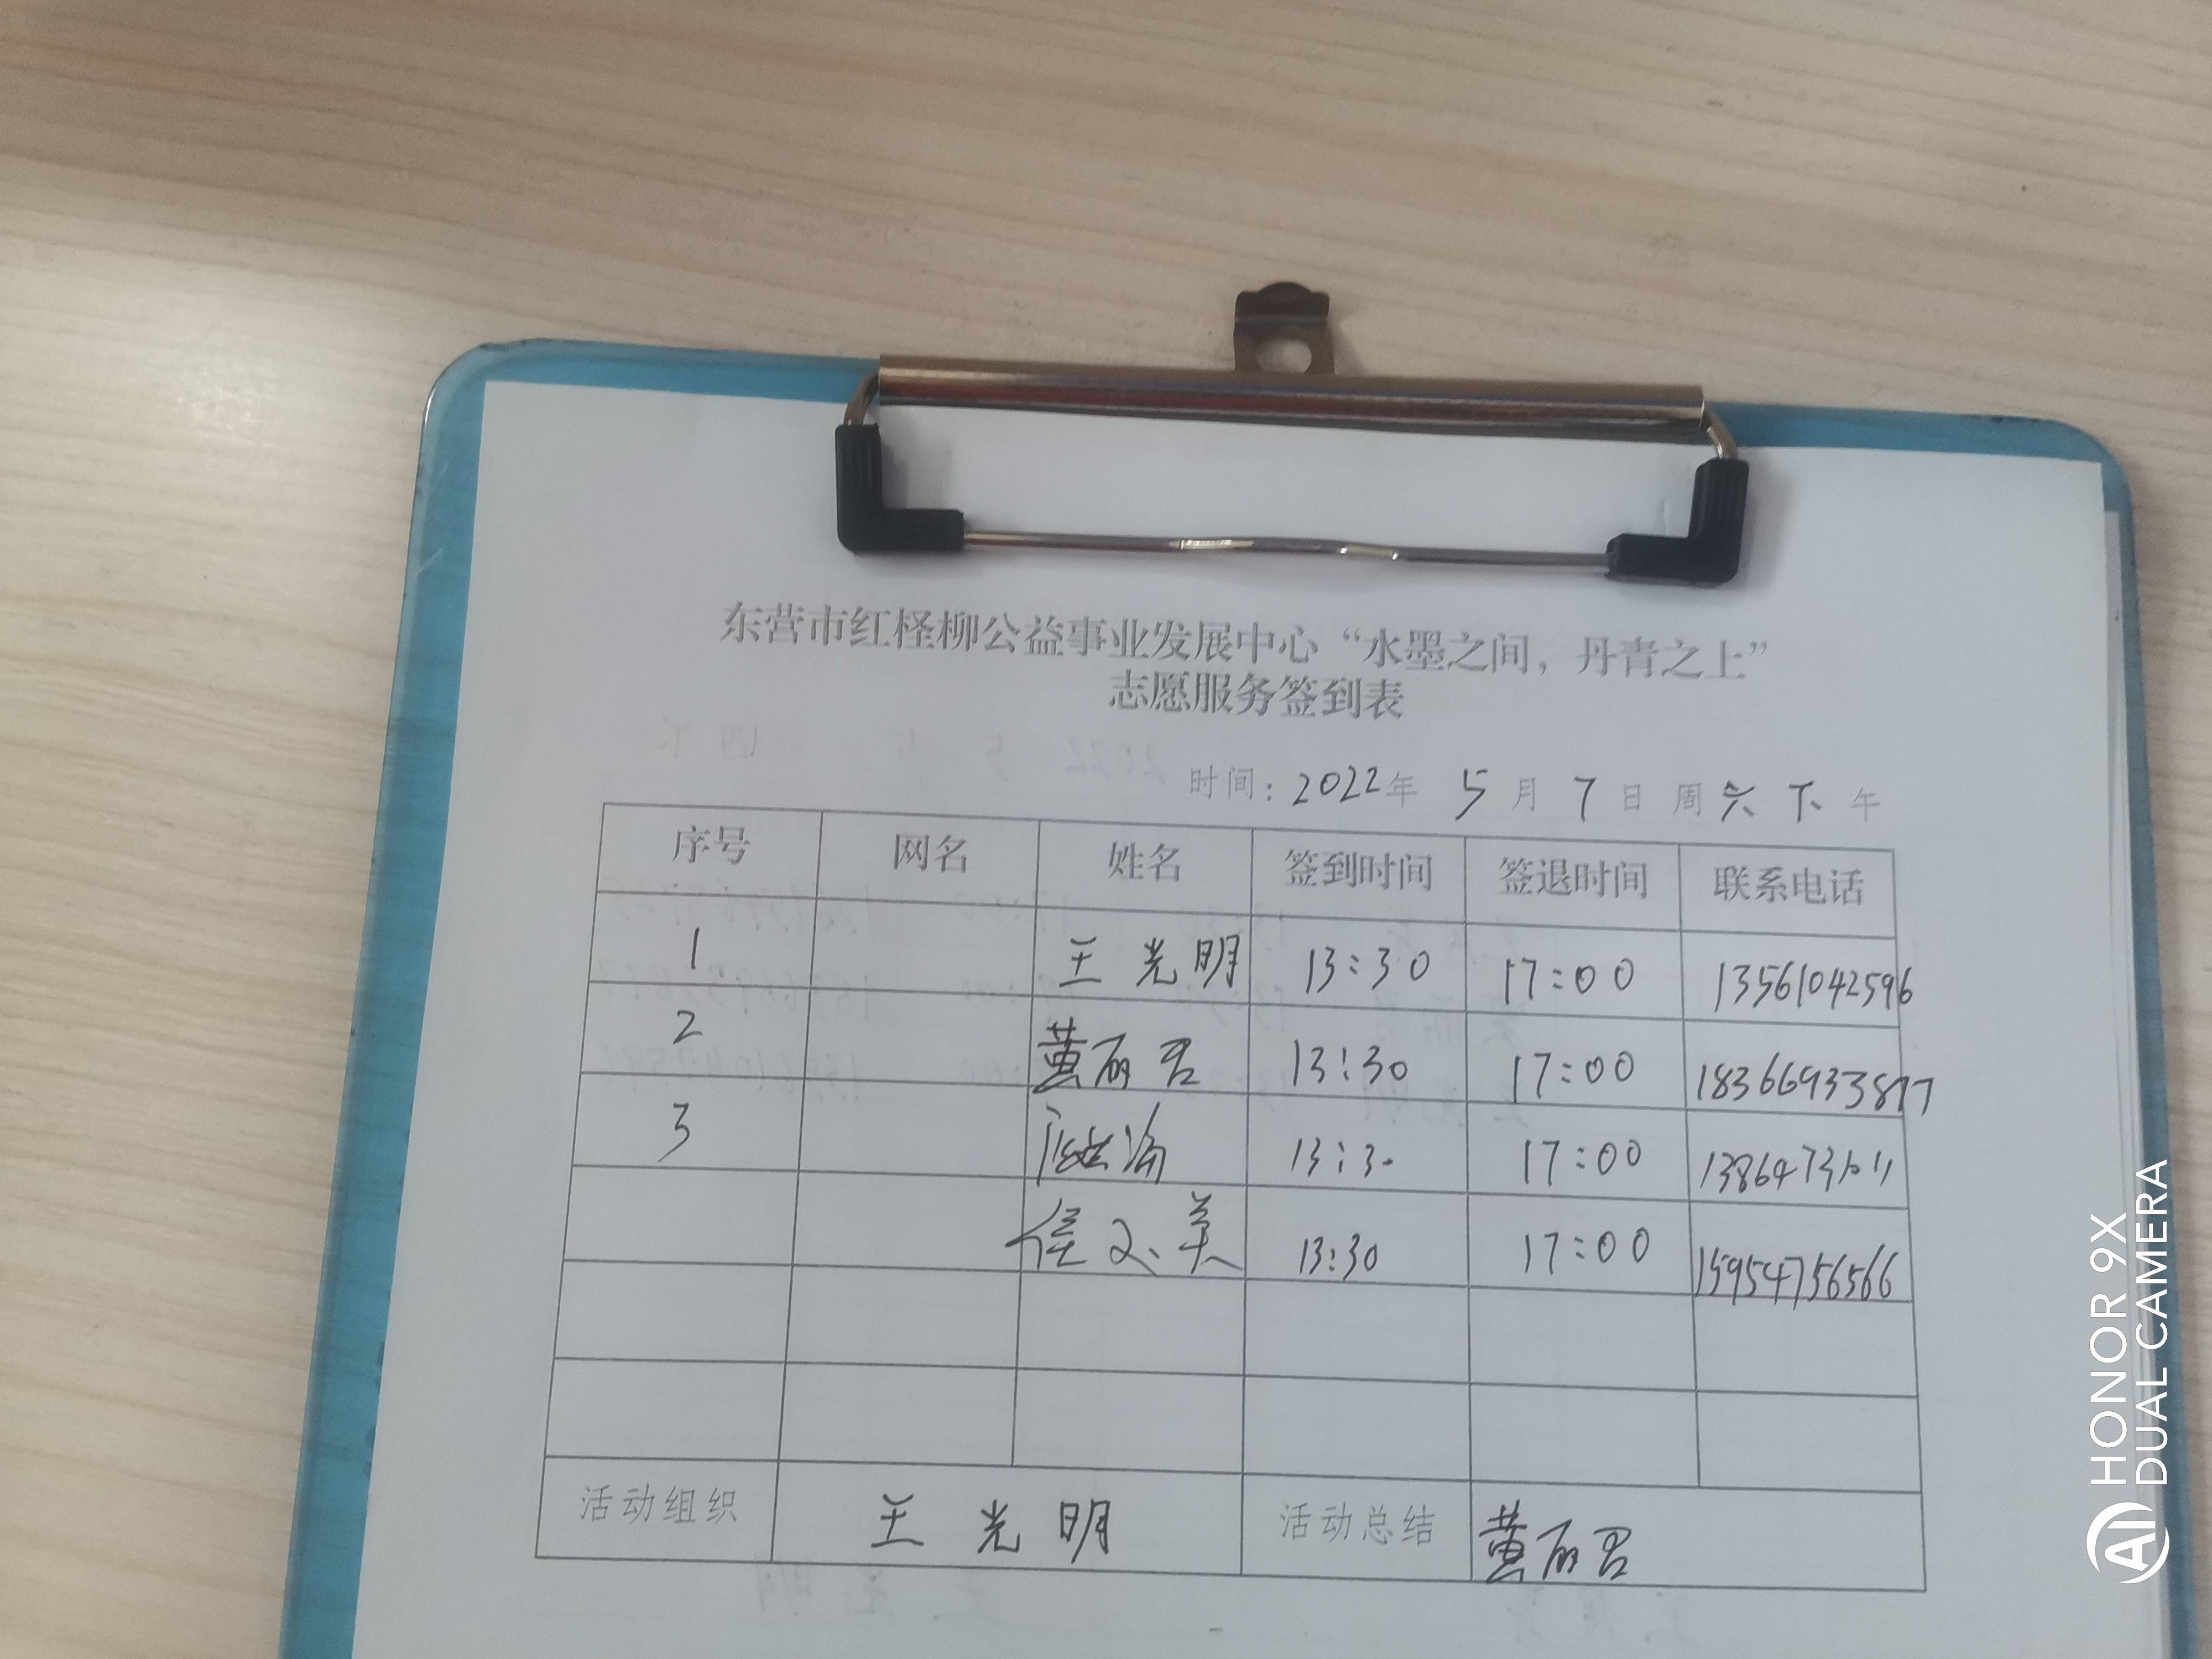 东营市红柽柳公益事业发展中心“水墨之间，丹青之上”
志愿服务签到表
时间：2022年 5月7日 周六下午
序号 网名 姓名 签到时间 签退时间 联系电话
1 王光明 13:30 17:00 13561042596
2 黄丽君 13:30 17:00 18366933877
3 13:30 17:00
13:30 17:00 15954756566
活动组织 王光明 活动总结 黄丽君
HONOR 9X
DUAL CAMERA
AI